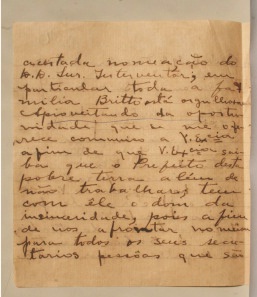 acertada nomeação do
Snr. Interventor, em
particular toda a fa
milia Britto está orgulhosa
Aproveitando da oportu
nidade que se me ofe
rece communico a V. Excia
afim de que V. Excia sai
ba que o Prefeito desta
pobre terra alem de
não trabalhar, tem
com elle o dom da
insinceridade, pois afim
de nos afrontar nomeia
para todos os seus secre
tarios pessoas que são